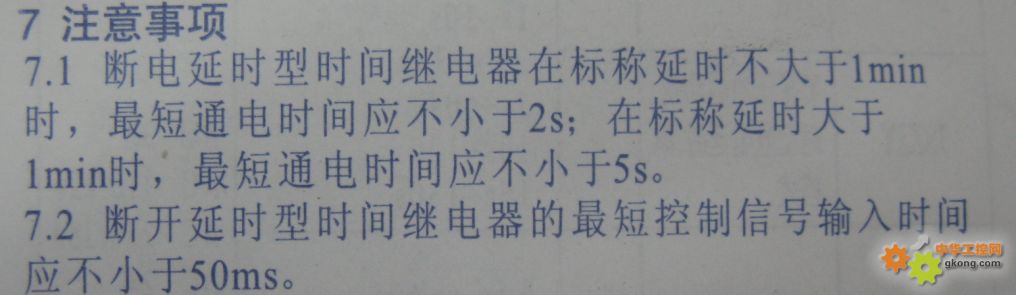 7 注意事项
7.1 断电延时型时间继电器在标称延时不大于1min
时，最短通电时间应不小于2s；在标称延时大于
1min时，最短通电时间应不小于5s。
7.2 断开延时型时间继电器的最短控制信号输入时间
应不小于50ms。
中华工控网
gkong.com